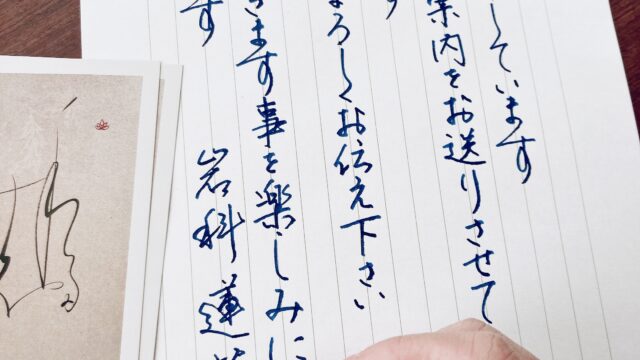 しています
案内をお送りさせて
す
ろしくお伝え下さい
きます事を楽しみに
す
岩科蓮